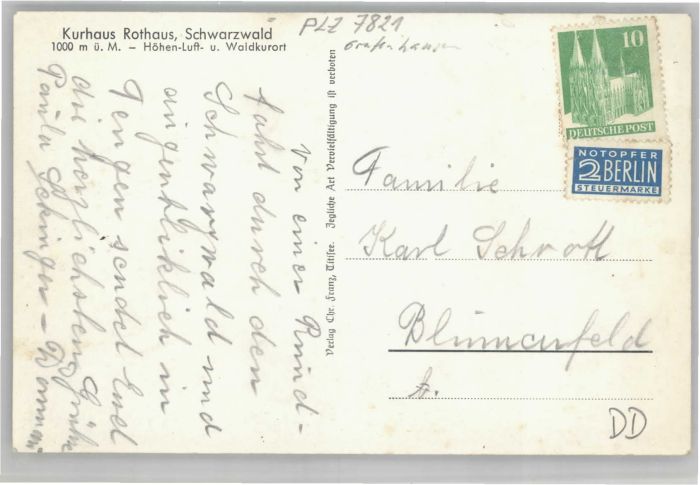 Kurhaus Rothaus, Schwarzwald
1000 m ü. M. – Höhen-Luft- u. Waldkurort
PLZ 7821
Grafenhausen
10
DEUTSCHE POST
NOTOPFER
2 BERLIN
STEUERMARKE
Von einer Rund-
fahrt durch den
Schwarzwald und
augenblicklich in
Tengen sendet Euch
die herzlichsten Grüße
Paula
Verlag Chr. Franz, Titisee. Jegliche Art Vervielfältigung ist verboten
Familie
Karl Schrott
Blumenfeld
A.
DD